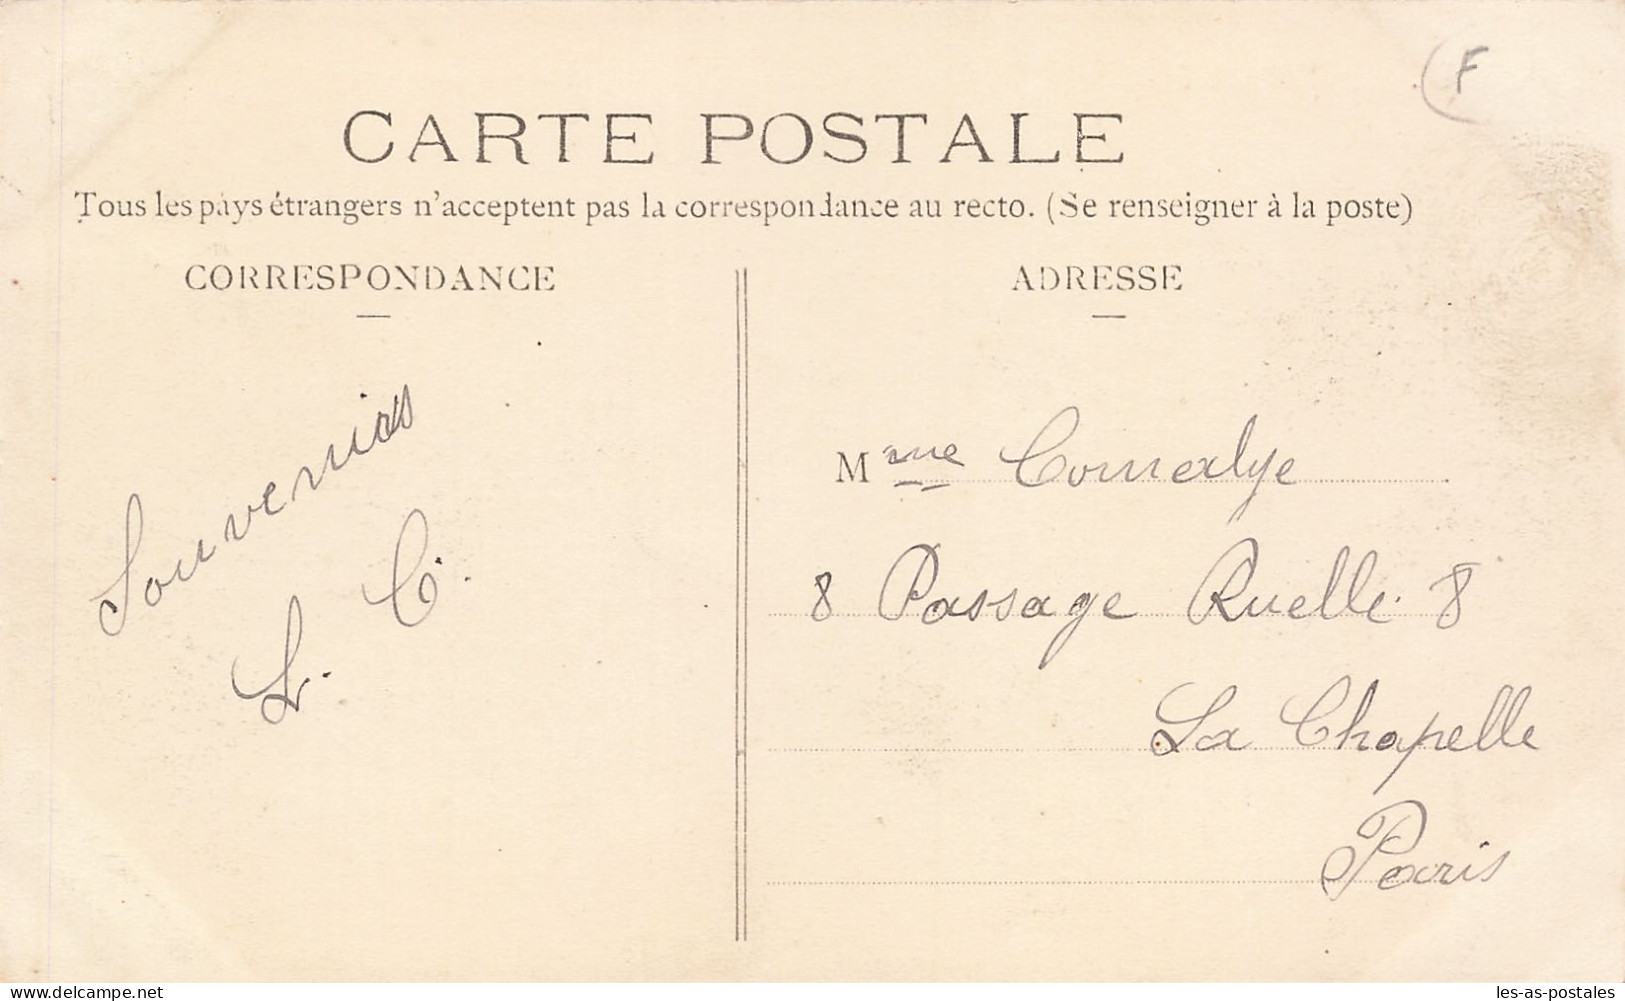 F
CARTE POSTALE
Tous les pays étrangers n'acceptent pas la correspondance au recto. (Se renseigner à la poste)
CORRESPONDANCE
Souvenirs
L. C.
ADRESSE
Mme
8 Passage Ruelle. 8
La Chapelle
Paris
www.delcampe.net
les-as-postales